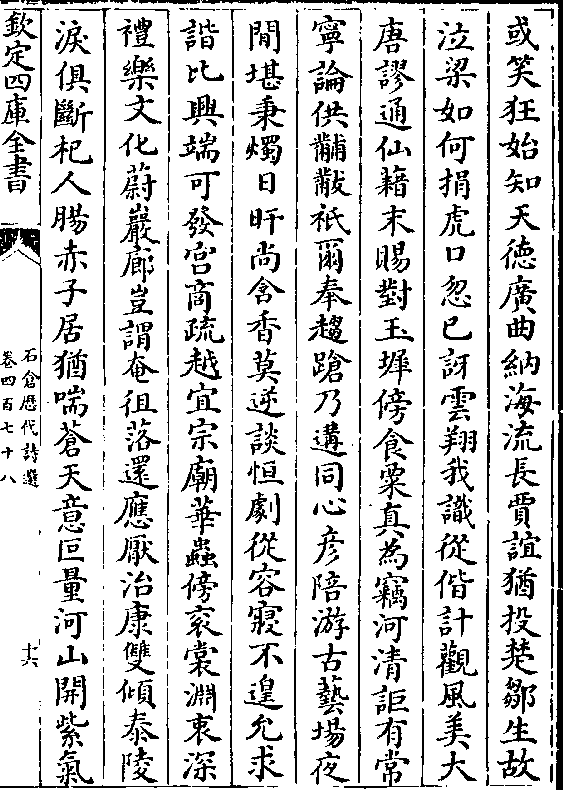 或笑狂始知天徳廣曲納海流長賈誼猶投楚鄒生故
泣梁如何捐虎口忽已訝雲翔我識從偕計觀風美大
唐謬通仙藉末賜對玉墀傍食粟真為竊河清詎有常
寧論供黼黻祇爾奉趨蹌乃遘同心彦陪游古藝場夜
閒堪秉燭日旰尚含香莫逆談恒劇從容寢不遑允求
諧比興端可發宫商疏越宜宗廟華蟲傍衮裳淵衷深
禮樂文化蔚巖廊豈謂奄徂落還應厭治康雙傾泰陵
淚俱斷杞人腸赤子居猶喘蒼天意叵量河山開紫氣
欽定四庫全書
石倉歴代詩選
卷四百七十八
十六